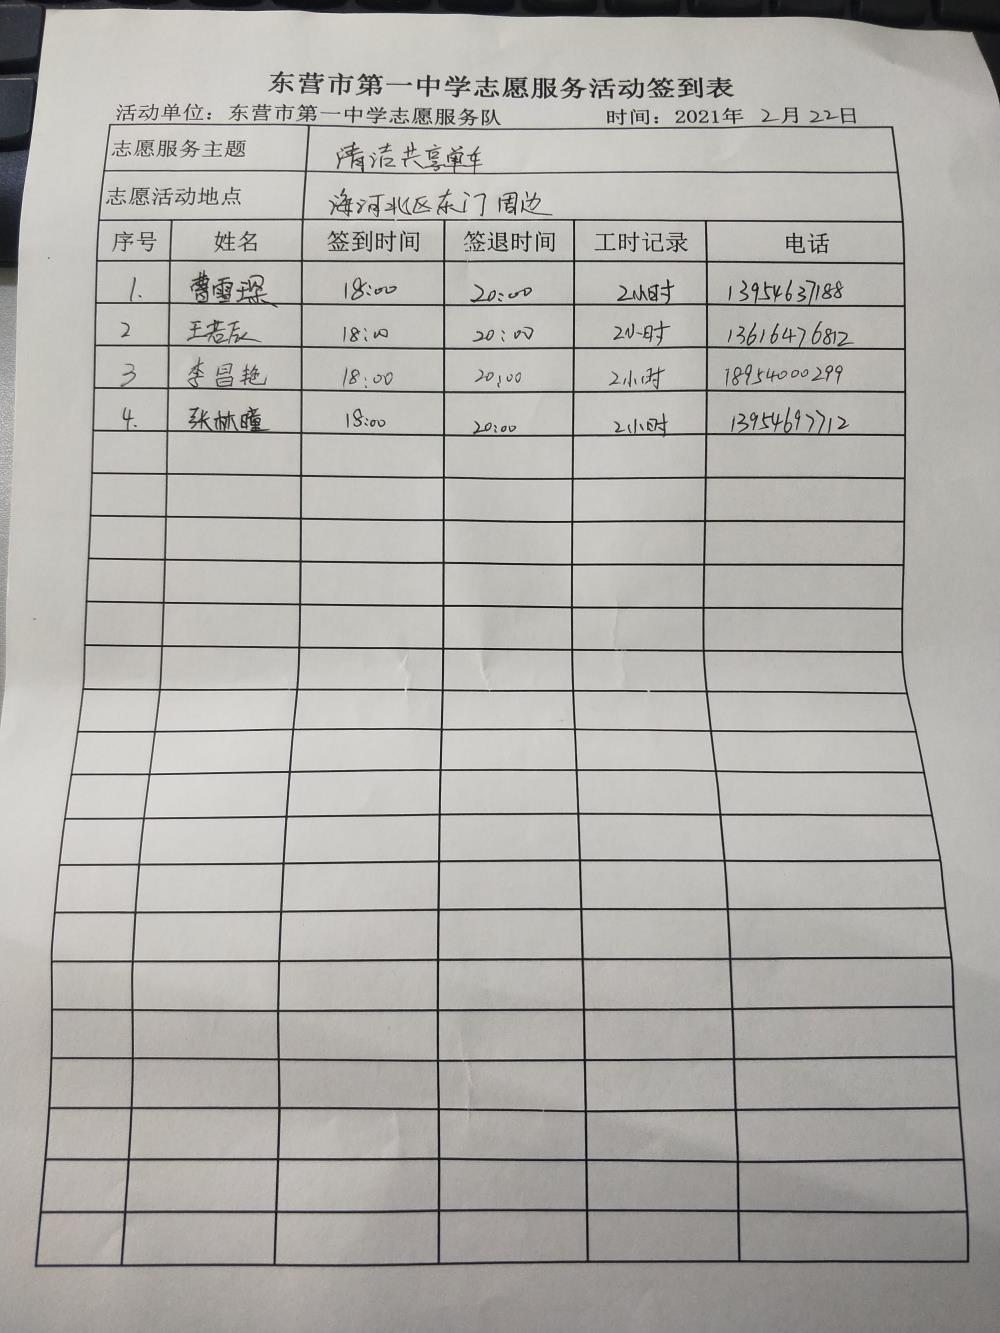 东营市第一中学志愿服务活动签到表
活动单位：东营市第一中学志愿服务队 时间：2021年 2月 22日
志愿服务主题 清洁共享单车
志愿活动地点 海河北区东门周边
序号 姓名 签到时间 签退时间 工时记录 电话
1. 曹雪琛 18:00 20:00 2小时 13954637188
2 王若辰 18:00 20:00 2小时 13616476812
3 李昌艳 18:00 20:00 2小时 18954000299
4. 张林瞳 18:00 20:00 2小时 13954697712